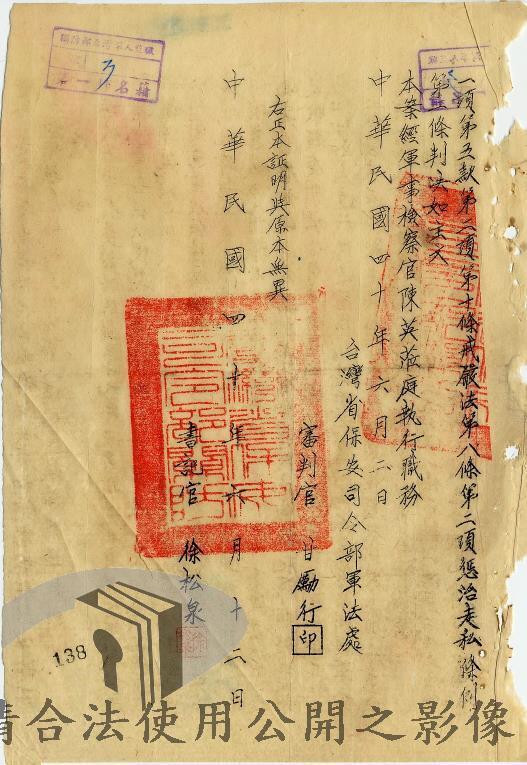 一項第五款第二項第十條戒嚴法第八條第二項懲治走私條例
第三條判決如主文
本案經軍事檢察官陳英蒞庭執行職務
中華民國四十年六月二日
台灣省保安司令部軍法處
審判官 甘勵行 印
右正本証明與原本無異
書記官 徐松泉
中華民國四十年六月十二日
138
請合法使用公開之影像